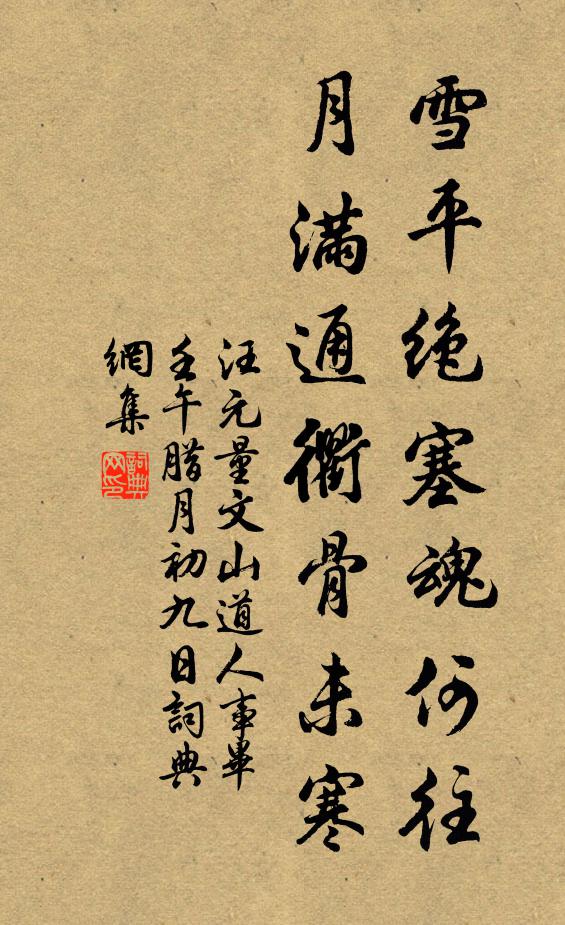 雪平絶塞魂何往
月滿通衢骨未寒
汪元量文山道人事畢
壬午腊月初九日詞典
網集
詞典
網印